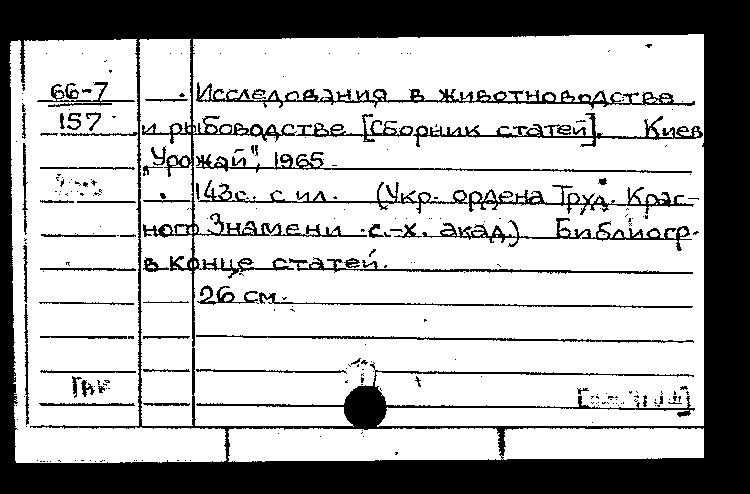 66-7 Исследования в животноводстве
157 и рыбоводстве [Сборник статей]. Киев,
„Урожай", 1965.
143с. с ил. (Укр. ордена Труд. Крас-
ного Знамени с.-х. акад.) Библиогр.
в конце статей.
26 см.